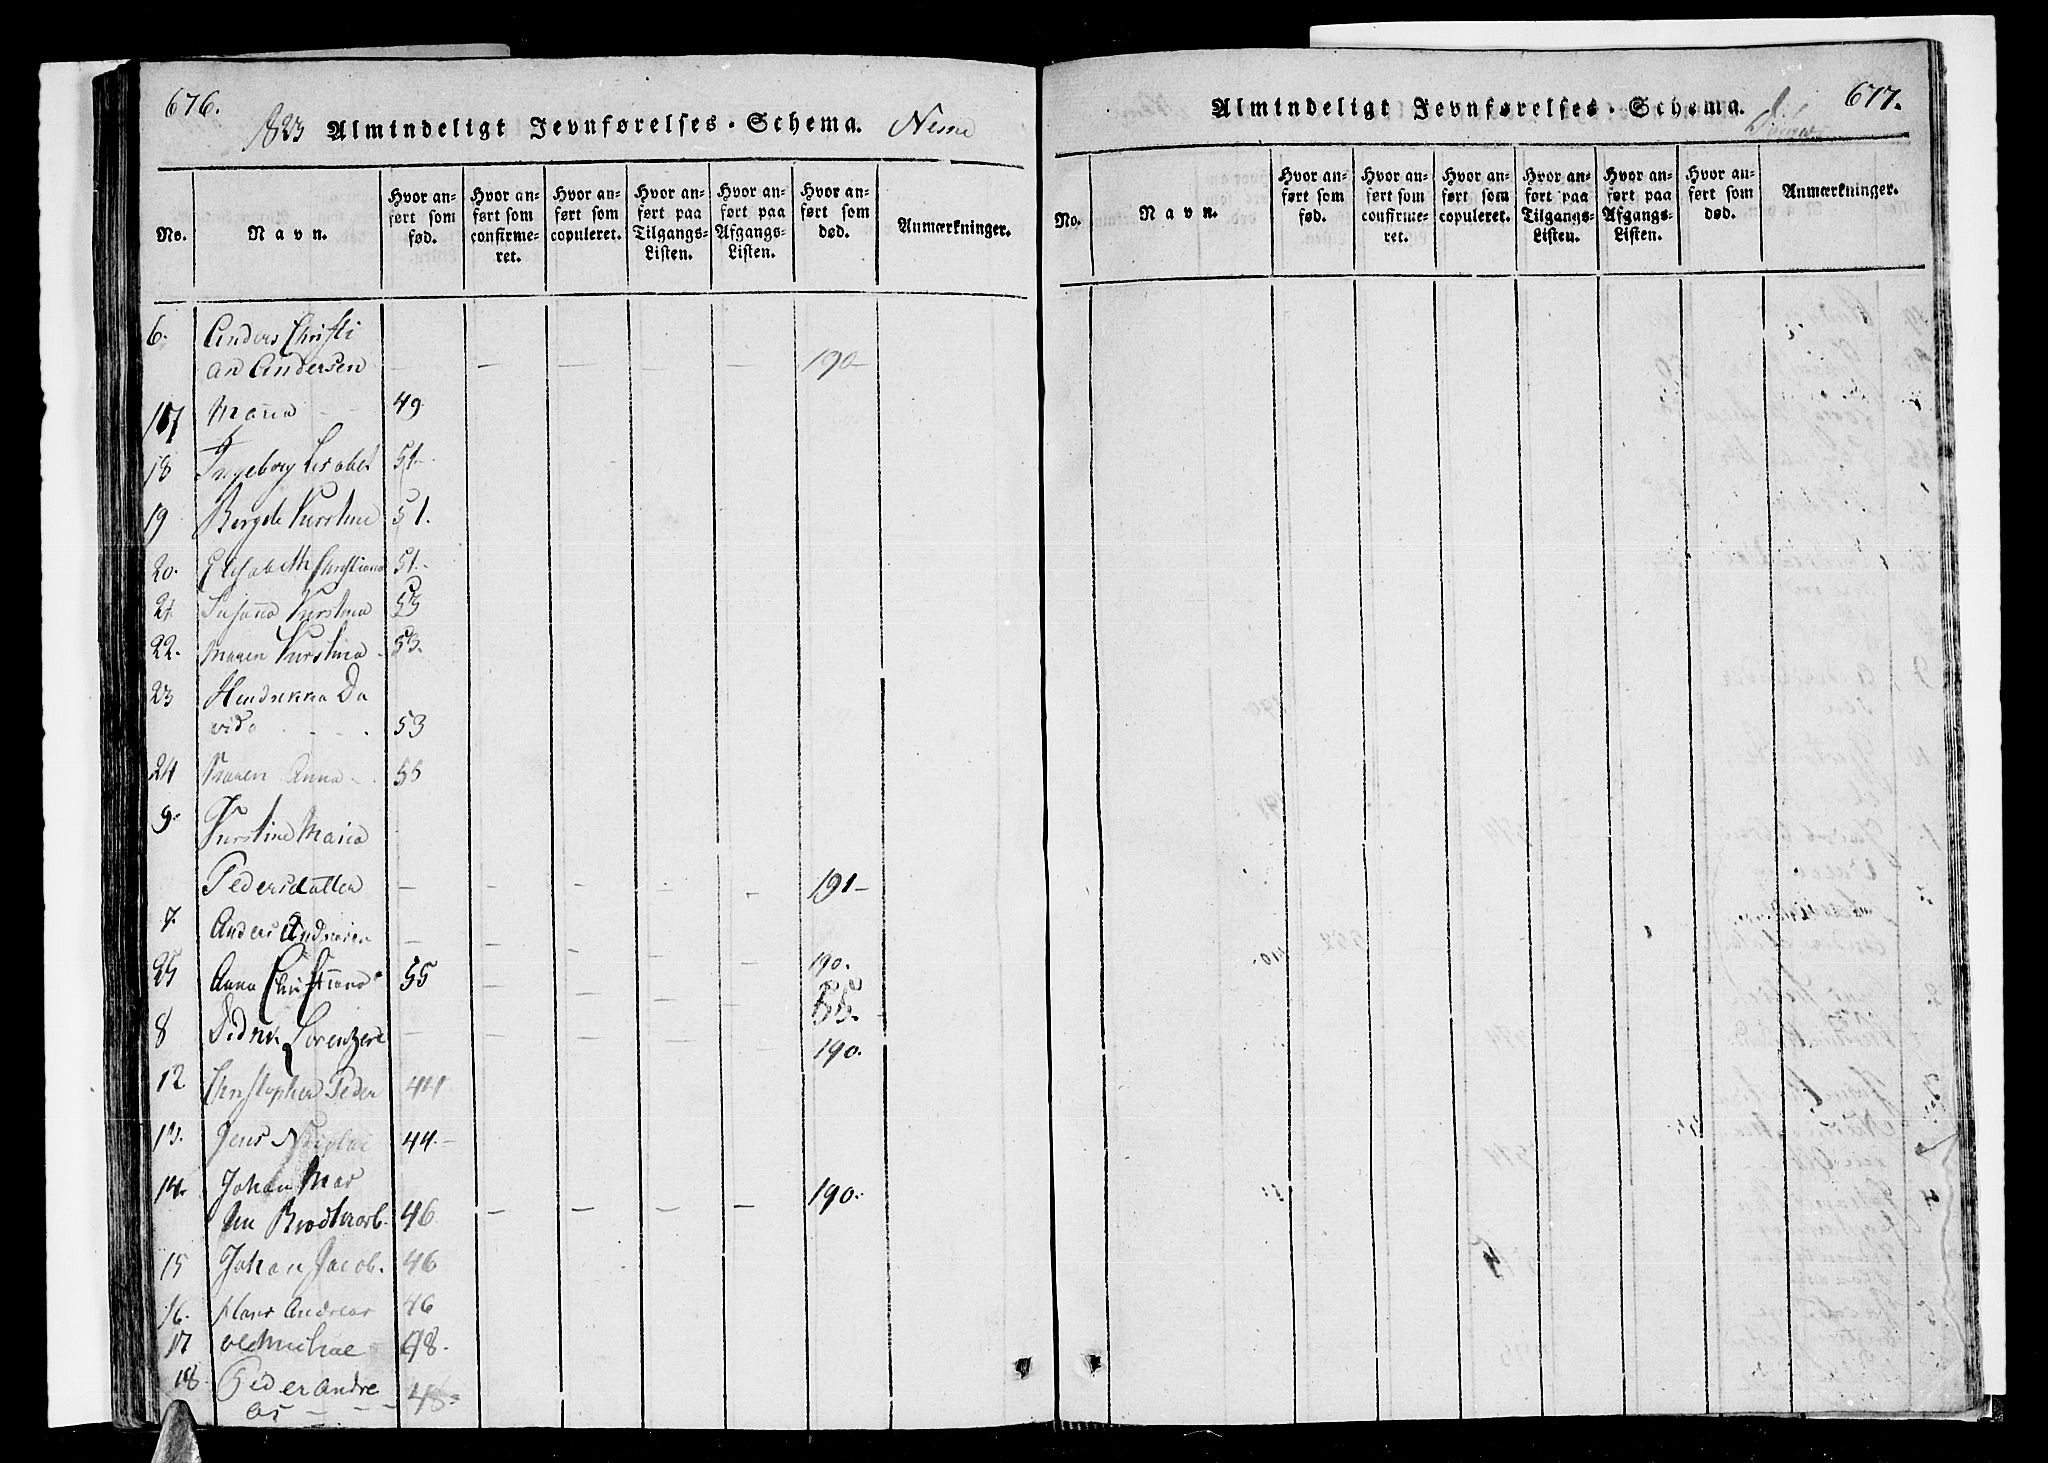 676.
1823 Almindeligt Jevnførelses-Schema. Nesne
No.
Navn.
Hvor anført som fød.
Hvor anført som confirmeret.
Hvor anført som copuleret.
Hvor anført paa Tilgangs-Listen.
Hvor anført paa Afgangs-Listen.
Hvor anført som død.
Anmærkninger.
6. Anders Christi
an Andersen — — — — — 190—
17 Maña — — 49
18 Ingeborg Lisabet 51—
19 Bergele Kirstine 51.
20. Elisabeth Christiana 51.
21 Susaña Kirstina 53
22. Maren Kirstina 53.
23 Hendrikka Da
vida . . . 53
24 Karen Anna — 55
9. Kirstine Maria
Pedersdatter — — — — — 191—
7. Anders Andersen — — — — — 190.
25 Anna Christiana 55 — — — — 55.
8 Didrik Lorentzen — — — — — 190.
12 Christopher Peder 44
13. Jens Nicolai 44.—
14. Johan Mar
tin Brodtkorb. 46 — — — — 190.
15 Johan Jacob. 46
16. Hans Andreas 46
17 Ole Michael 48.
18. Peder Andre
as — — — 48.
Almindeligt Jevnførelses-Schema. 677.
No.
Navn.
Hvor anført som fød.
Hvor anført som confirmeret.
Hvor anført som copuleret.
Hvor anført paa Tilgangs-Listen.
Hvor anført paa Afgangs-Listen.
Hvor anført som død.
Anmærkninger.